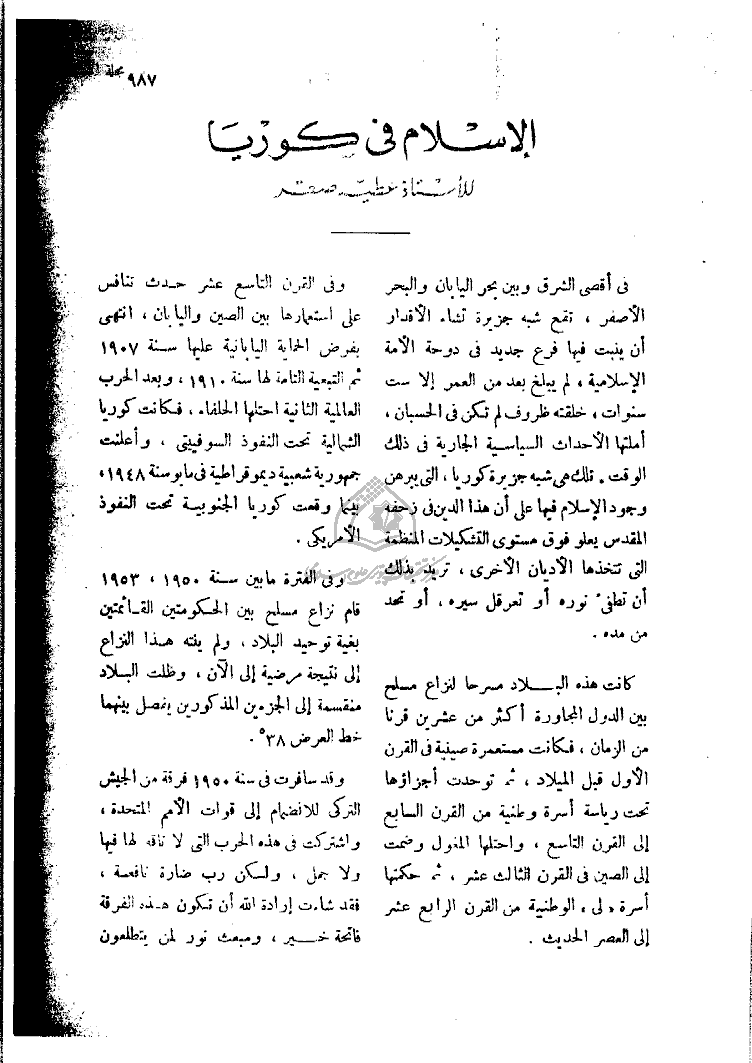 ٩٨٧
مجلة
الإسلام فى كوريا
للأستاذ عطية صقر
فى أقصى الشرق وبين بحر اليابان والبحر
الأصفر ، تقع شبه جزيرة تشاء الأقدار
أن ينبت فيها فرع جديد فى دوحة الأمة
الإسلامية ، لم يبلغ بعد من العمر إلا ست
سنوات ، خلقته ظروف لم تكن فى الحسبان ،
أملتها الأحداث السياسية الجارية فى ذلك
الوقت . تلك هى شبه جزيرة كوريا ، التى يبرهن
وجود الإسلام فيها على أن هذا الدين فى زحفه
المقدس يعلو فوق مستوى التشكيلات المنظمة
التى تتخذها الأديان الأخرى ، تريد بذلك
أن تطفىء نوره أو تعرقل سيره ، أو تحد
من مده .
كانت هذه البـــلاد مسرحا لنزاع مسلح
بين الدول المجاورة أكثر من عشرين قرنا
من الزمان ، فكانت مستعمرة صينية فى القرن
الأول قبل الميلاد ، ثم توحدت أجزاؤها
تحت رياسة أسرة وطنية من القرن السابع
إلى القرن التاسع ، واحتلها المغول وضمت
إلى الصين فى القرن الثالث عشر ، ثم حكمتها
أسرة « لى » الوطنية من القرن الرابع عشر
إلى العصر الحديث .
وفى القرن التاسع عشر حـدث تنافس
على استعمارها بين الصين واليابان ، انتهى
بفرض الحماية اليابانية عليها سـنة ١٩٠٧
ثم التبعية التامة لها سنة ١٩١٠ ، وبعد الحرب
العالمية الثانية احتلها الحلفاء . فكانت كوريا
الشمالية تحت النفوذ السوفيتى ، وأعلنت
جمهورية شعبية ديموقراطية فى مايو سنة ١٩٤٨ ،
بينما وقعت كوريا الجنوبيـة تحت النفوذ
الأمريكى .
وفى الفترة مابين سـنة ١٩٥٠ ، ١٩٥٣
قام نزاع مسلح بين الحكومتين القـائمتين
بغية توحيد البلاد ، ولم ينته هـذا النزاع
إلى نتيجة مرضية إلى الآن ، وظلت البـلاد
منقسمة إلى الجزءين المذكورين يفصل بينهما
خط العرض ٣٨° .
وقد سافرت فى سنة ١٩٥٠ فرقة من الجيش
التركى للانضمام إلى قوات الأمم المتحدة ،
واشتركت فى هذه الحرب التى لا ناقة لها فيها
ولا جمل ، ولـكن رب ضارة نافعـة ،
فقد شاءت إرادة الله أن تـكون هـذه الفرقة
فاتحة خـــير ، ومبعث نور لمن يتطلعون